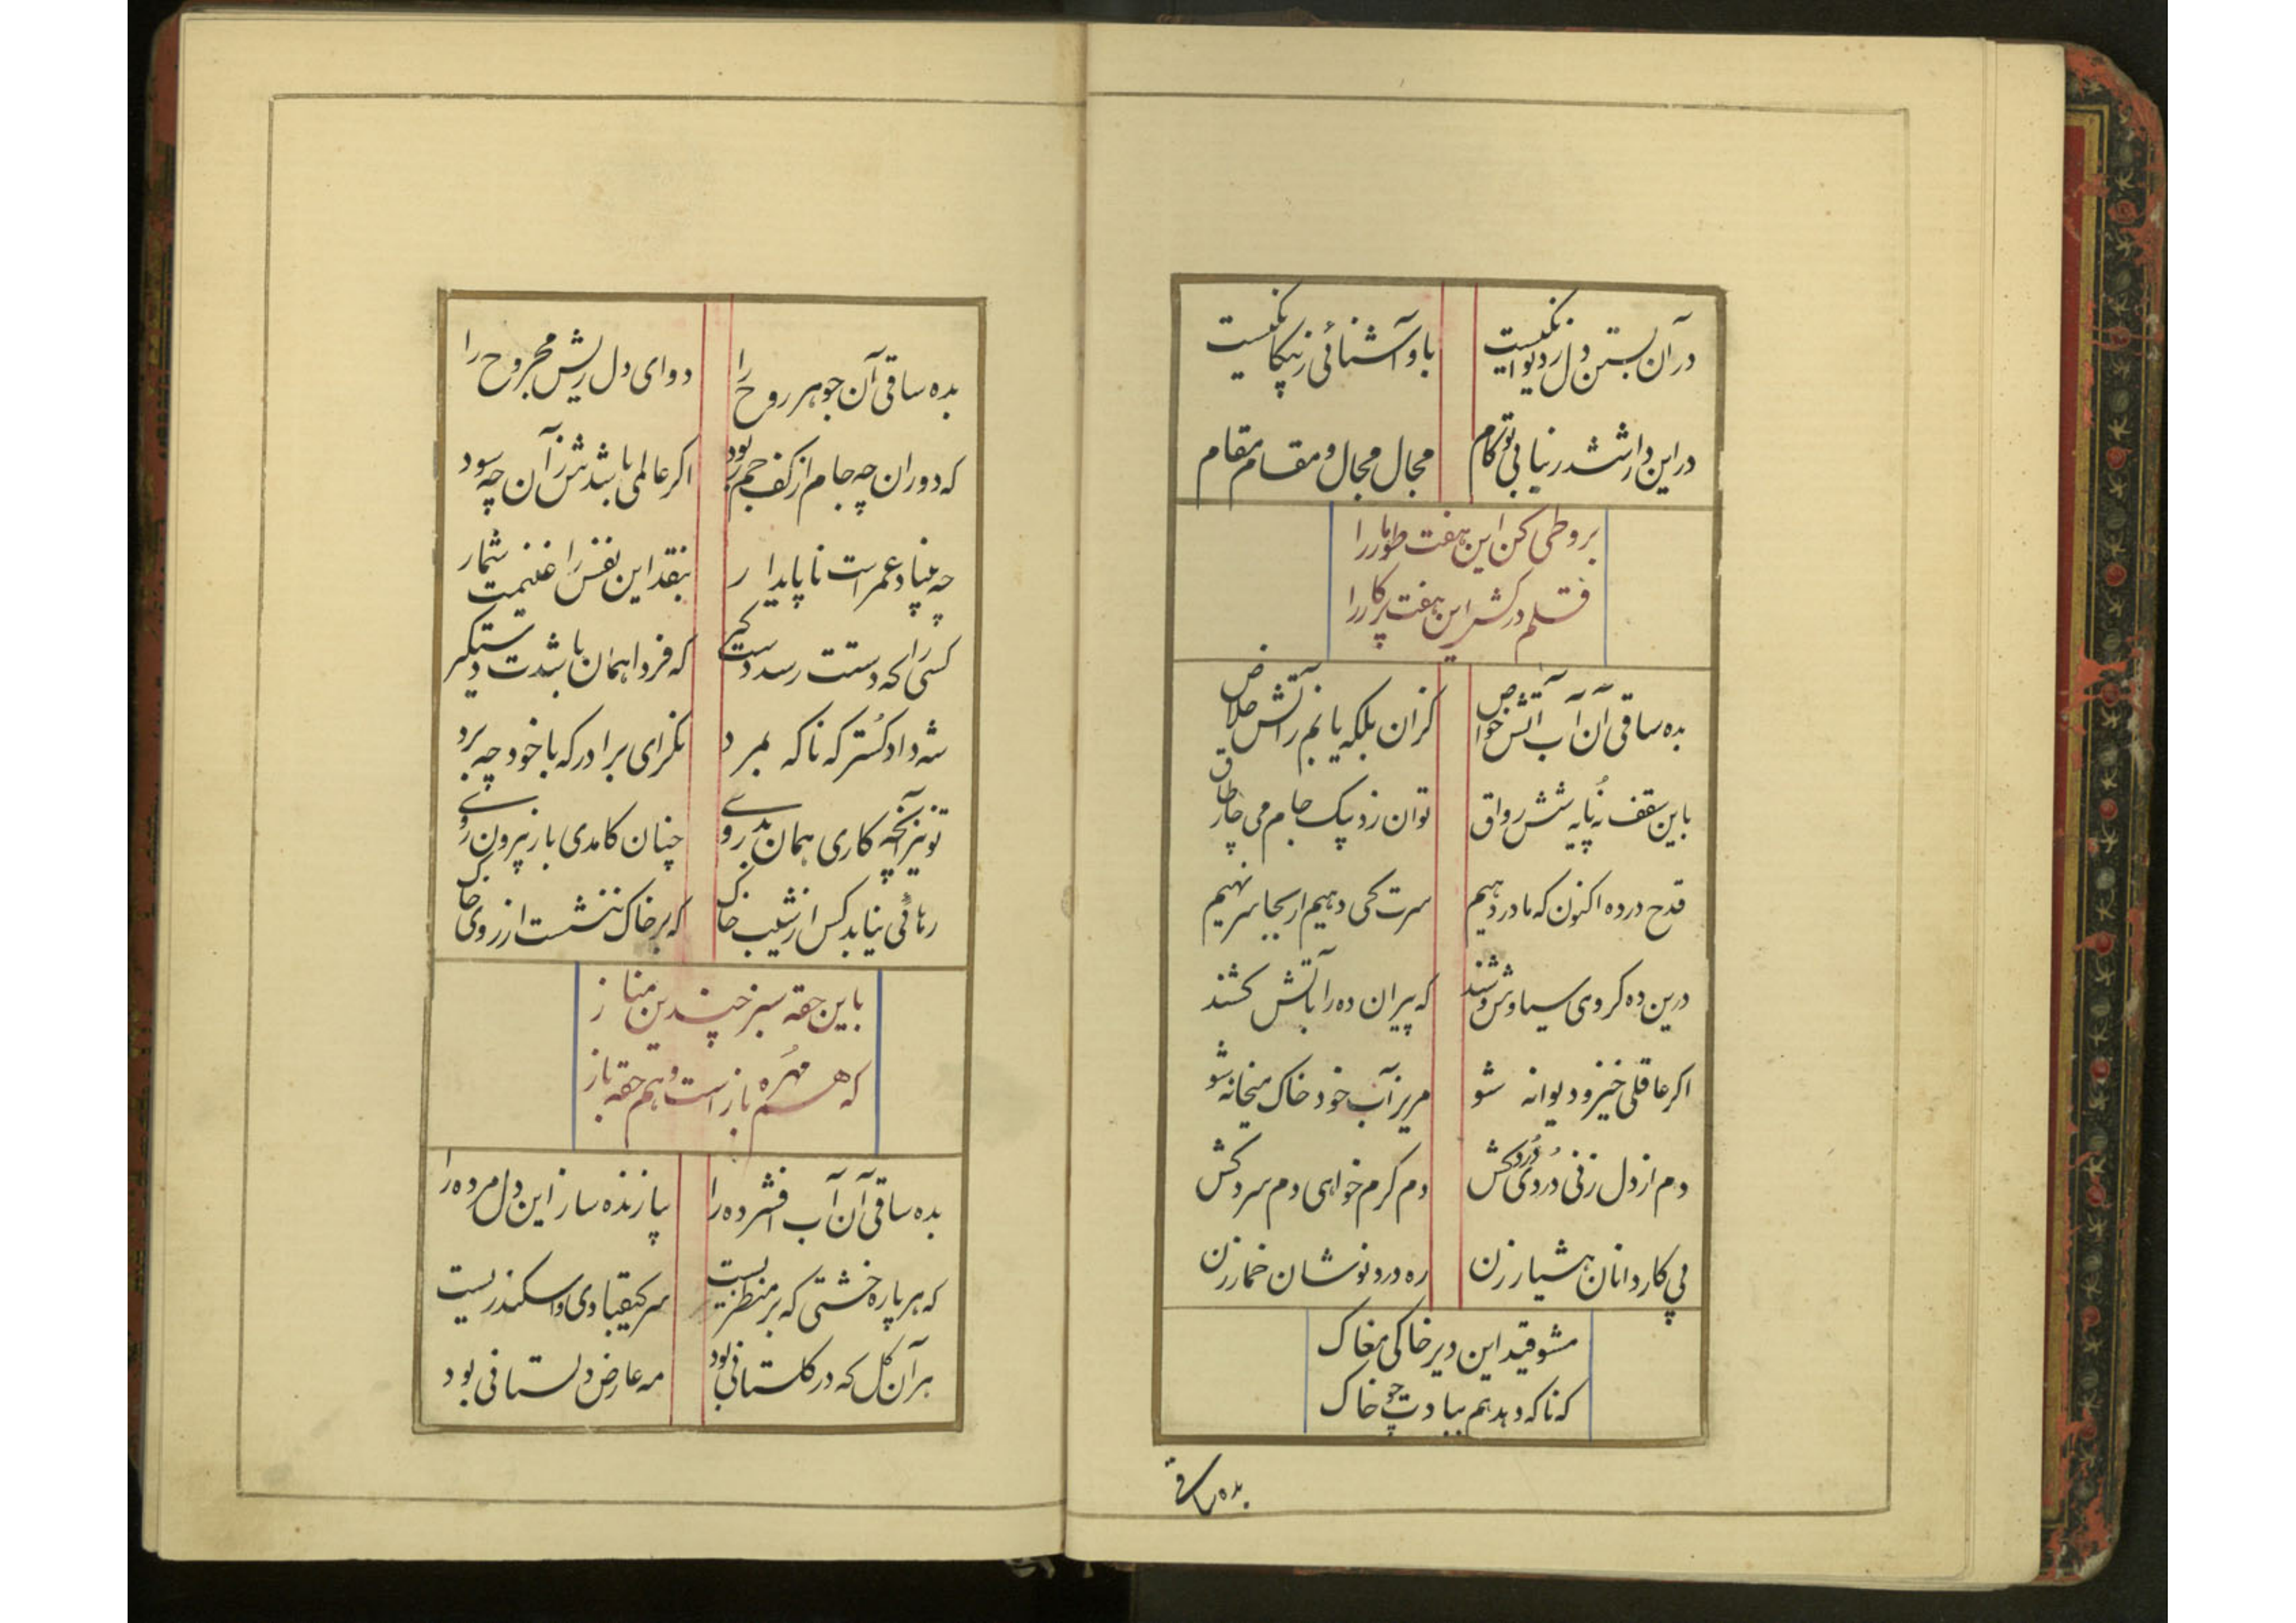 در آن بستن دل ز دیوانگیست
با و آشنائی ز بیکانگیست
در این دار ششدر نیابی تو کام
مجال مجال و مقام مقام
برو طی کن این هفت طومار را
قلم درکش این هفت پرکار را
بده ساقی آن آب آتش خواص
کزان بلکه یابم ز آتش خلاص
باین سقف نُه پایه شش رواق
توان زد بیک جام می چار طاق
قدح درده اکنون که ما در دهیم
سرت کی دهیم ار بجا سر نهیم
درین ده کروی سیاوش وشند
که پیران ده را باتش کشند
اکر عاقلی خیز و دیوانه شو
مریز آب خود خاک میخانه شو
دم از دل زنی دُردی دُرد کش
دم کرم خواهی دم سرد کش
پی کاردانان هشیار زن
ره درد نوشان خمار زن
مشو قید این دیر خاکی مغاک
که ناکه دهد هم ببادت چو خاک
بده ساقی
بده ساقی آن جوهر روح را
دوای دل ریش مجروح را
که دوران چه جام از کف جم ربود
اکر عالمی باشدش زآن چه سود
چه بنیاد عمر است ناپایدار
بنقد این نفس را غنیمت شمار
کسی را که دستت رسد دست کیر
که فردا همان باشدت دستکیر
شه دادکُستر که ناکه بمرد
نکر ای برادر که با خود چه برد
تو نیز آنچه کاری همان بدروی
چنان کامدی باز بیرون روی
رهائی نیابد کس از شیب خاک
که بر خاک ننشست از روی خاک
باین حقه سبز چندین مناز
که هم مُهره باز است و هم حقه باز
بده ساقی آن آب افشرده را
بیا زنده ساز این دل مرده را
که هر پاره خشتی که بر منظریست
سر کیقبادی و اسکندریست
هر آن کل که در کلستانی بود
مه عارض دلستانی بود